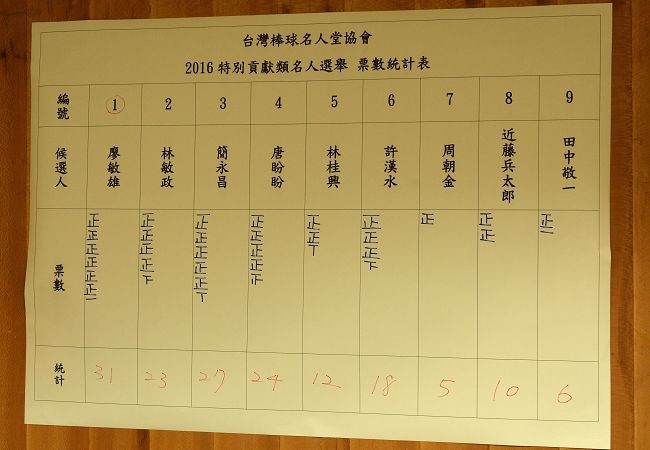 台灣棒球名人堂協會
2016 特別貢獻類名人選舉 票數統計表
編號 1 2 3 4 5 6 7 8 9
候選人 廖敏雄 林敏政 簡永昌 唐盼盼 林桂興 許漢水 周朝金 近藤兵太郎 田中敬一
票數
正 正 正 正 正 正 正 正 正
正 正 正 正 正 正 正
正 正 正 正 正
正 正 正 正
正 正
統計 31 23 27 24 12 18 5 10 6